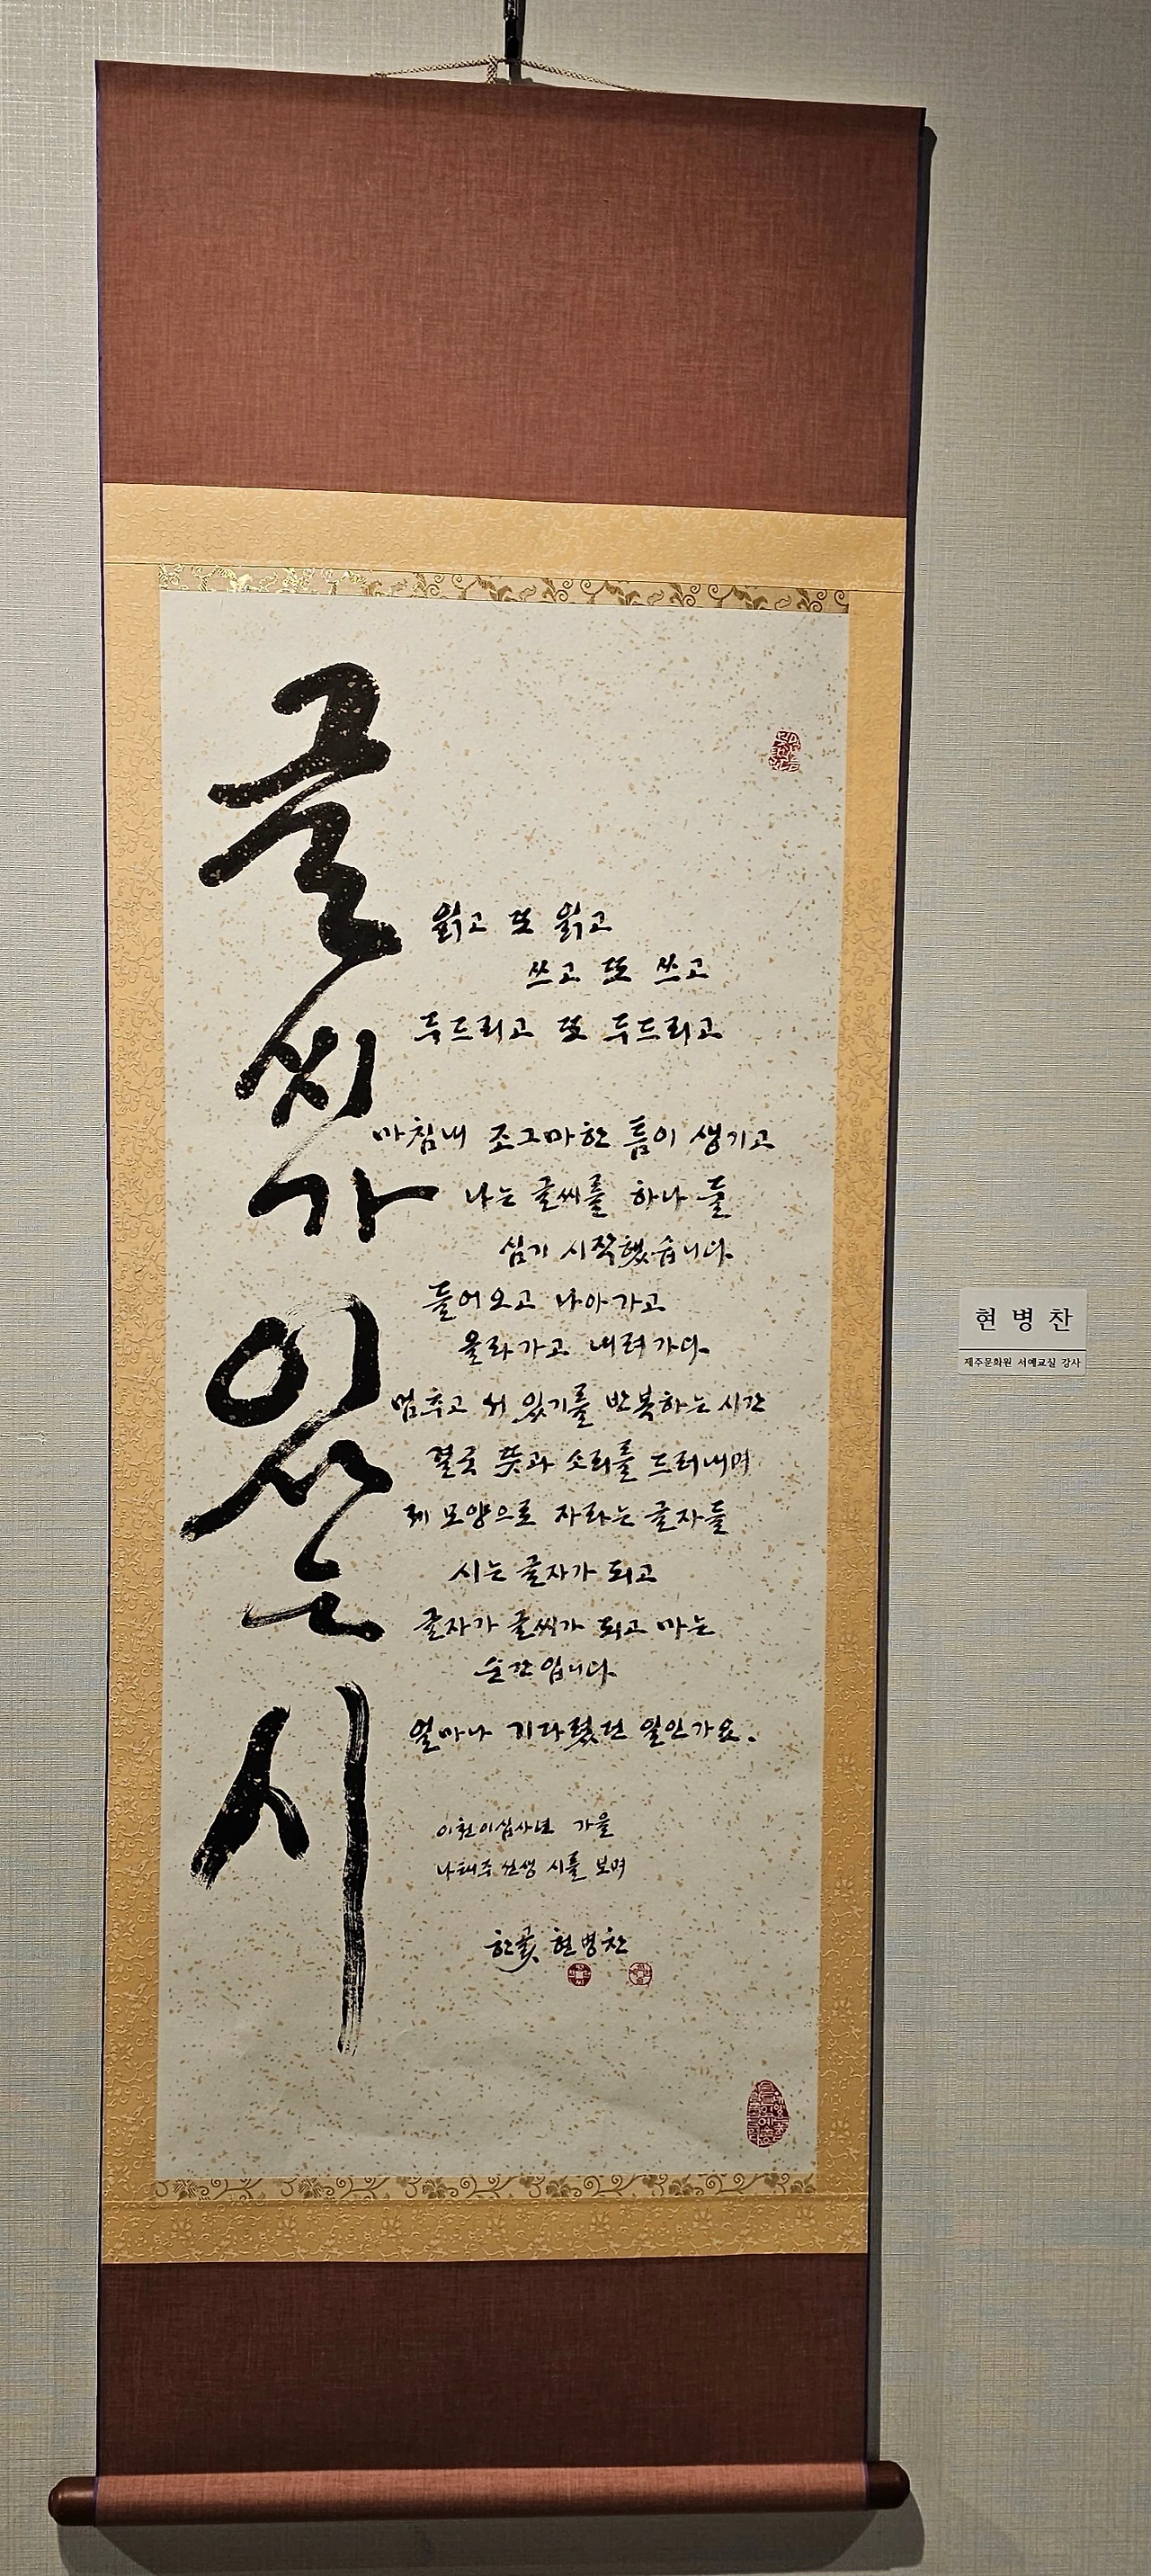 글씨가 있는 시
읽고 또 읽고
쓰고 또 쓰고
두드리고 또 두드리고
마침내 조그마한 틈이 생기고
나는 글씨를 하나 둘
심기 시작했습니다
들어오고 나아가고
올라가고 내려가다
멈추고 서 있기를 반복하는 시간
결국 뜻과 소리를 드러내며
제 모양으로 자라는 글자들
시는 글자가 되고
글자가 글씨가 되고 마는
순간입니다
얼마나 기다렸던 일인가요.
이천이십사년 가을
나태주 선생 시를 보며
한곬 현병찬
현병찬
제주문화원 서예교실 강사